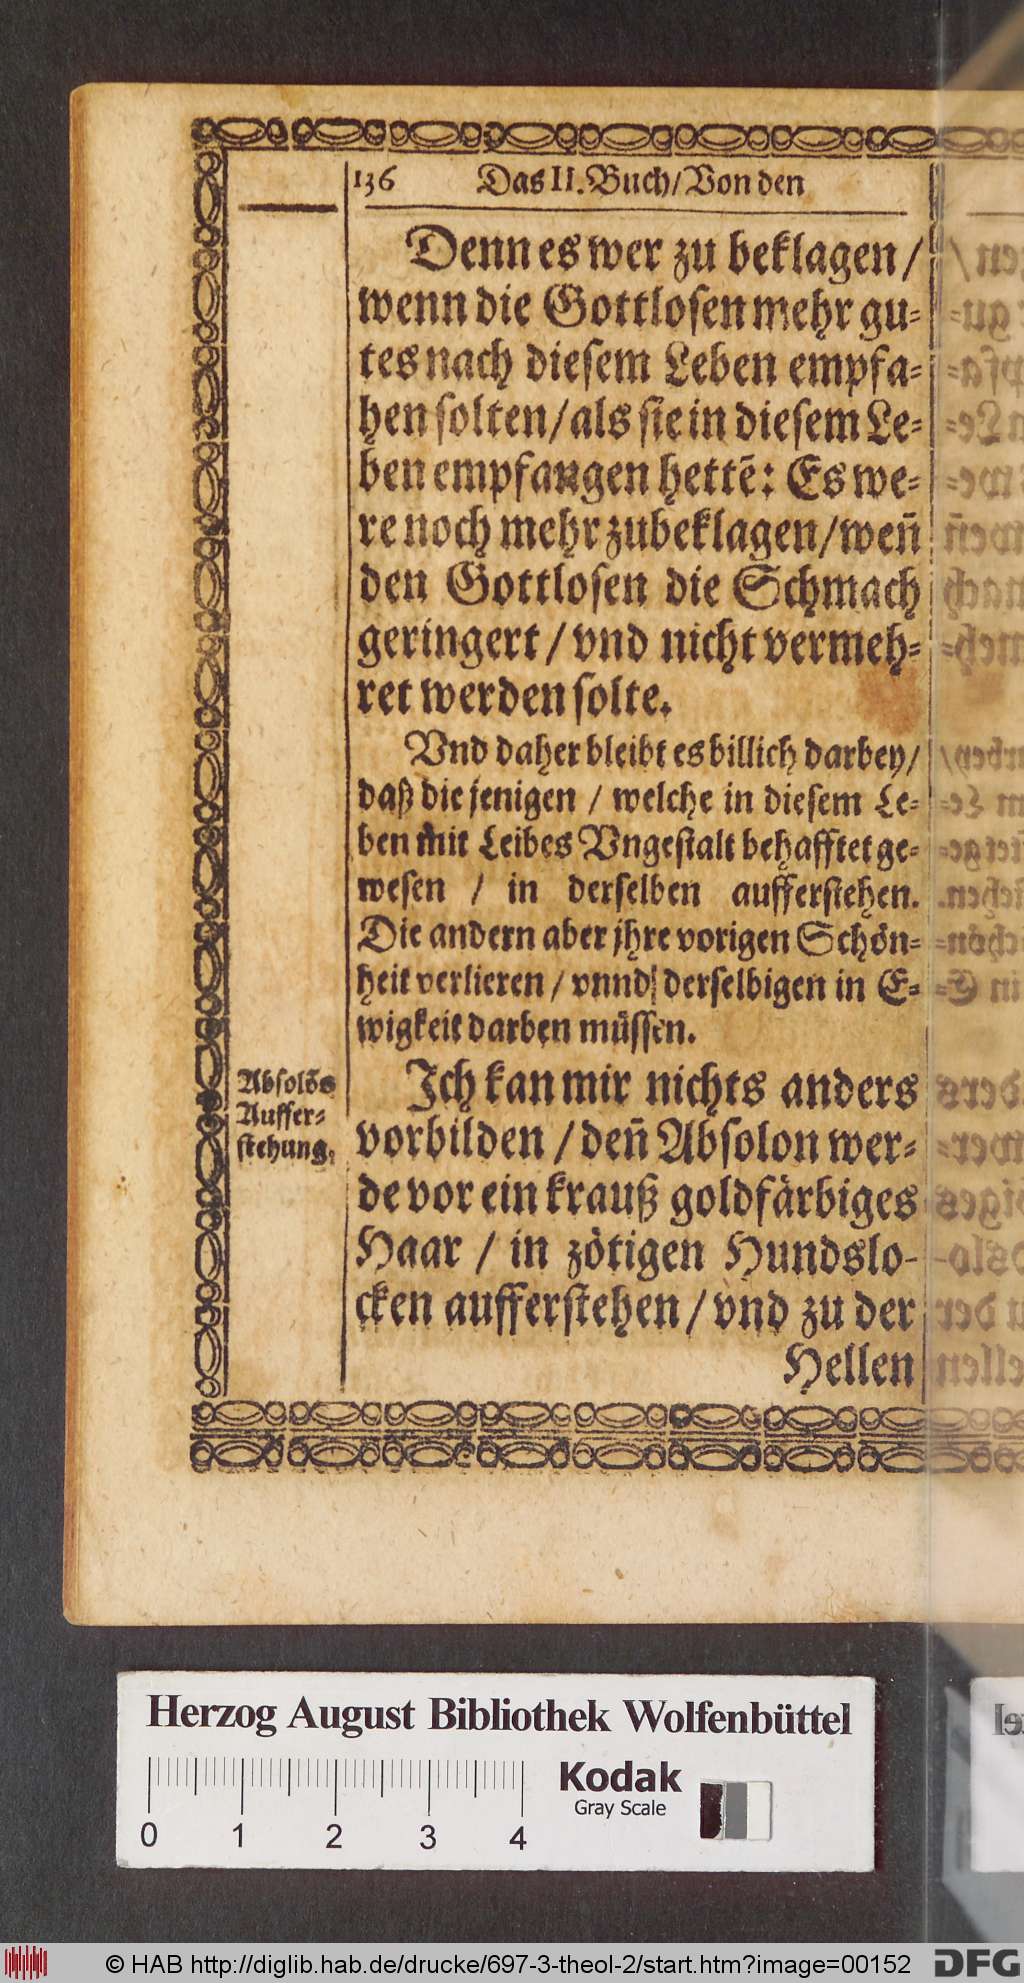 136 Das II. Buch/ Von den
Denn es wer zu beklagen/
wenn die Gottlosen mehr gu⸗
tes nach diesem Leben empfa⸗
hen solten/ als sie in diesem Le⸗
ben empfangen hettē: Es we⸗
re noch mehr zubeklagen/ weñ
den Gottlosen die Schmach
geringert/ vnd nicht vermeh⸗
ret werden solte.
Vnd daher bleibt es billich darbey/
daß die jenigen / welche in diesem Le⸗
ben mit Leibes Vngestalt behafftet ge⸗
wesen / in derselben aufferstehen.
Die andern aber jhre vorigen Schön⸗
heit verlieren / vnnd derselbigen in E⸗
wigkeit darben müssen.
Absolōs
Auffer⸗
stehung.
Ich kan mir nichts anders
vorbilden / deñ Absolon wer⸗
de vor ein krauß goldfärbiges
Haar / in zötigen Hundslo⸗
cken aufferstehen/ vnd zu der
Hellen
Herzog August Bibliothek Wolfenbüttel
Kodak
Gray Scale
0 1 2 3 4
© HAB http://diglib.hab.de/drucke/697-3-theol-2/start.htm?image=00152
DFG